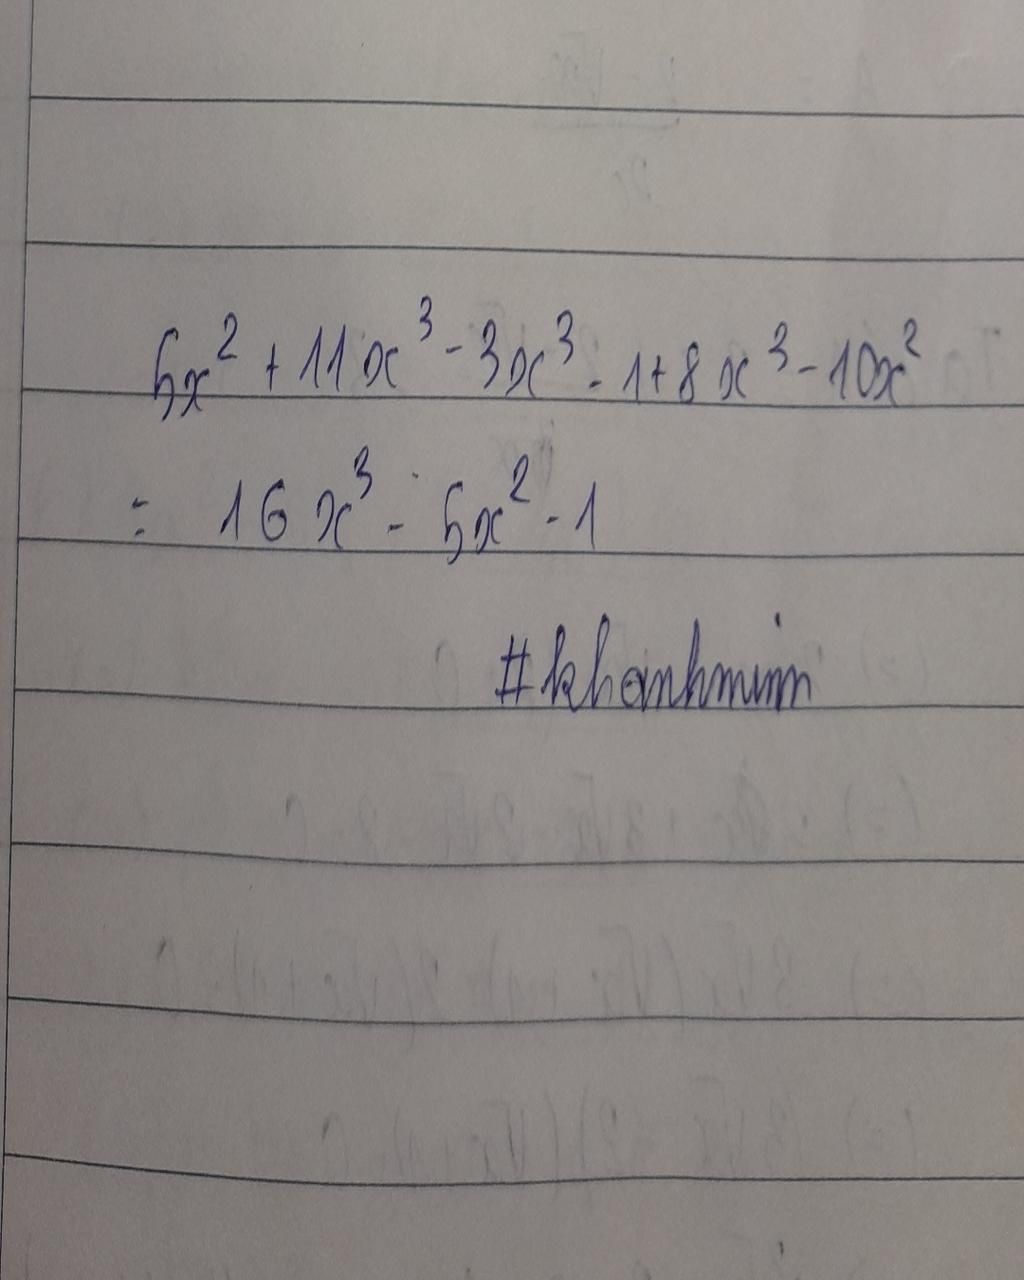 5x² + 11x³ - 3x³ - 1 + 8x³ - 10x²
= 16x³ - 5x² - 1
#khanhmim